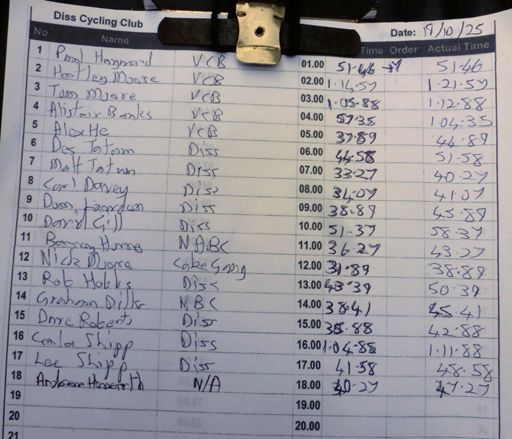 Diss Cycling Club Date: 17/10/25
No Name Time Order Actual Time
1 Paul Hayward VCB 01.00 51.46 51.46
2 Hartley Moore VCB 02.00 1.14.57 1.21.57
3 Tom Moore VCB 03.00 1.05.88 1.12.88
4 Alistair Banks VCB 04.00 57.35 1.04.35
5 Alex He VCB 05.00 37.89 44.89
6 Des Tatam Diss 06.00 44.58 51.58
7 Matt Tatum Diss 07.00 33.27 40.27
8 Carl Davey Diss 08.00 34.07 41.07
9 Diss 09.00 38.89 45.89
10 David Gill Diss 10.00 51.37 58.37
11 NABC 11.00 36.27 43.27
12 Nick Moore 12.00 31.89 38.89
13 Rob Hobbs Diss 13.00 43.39 50.39
14 Graham Dills NBC 14.00 38.41 45.41
15 Dave Roberts Diss 15.00 35.88 42.88
16 Shipp Diss 16.00 1.04.88 1.11.88
17 Lee Shipp Diss 17.00 41.58 48.58
18 N/A 18.00 40.27 47.27
19 19.00
20 20.00
20.00